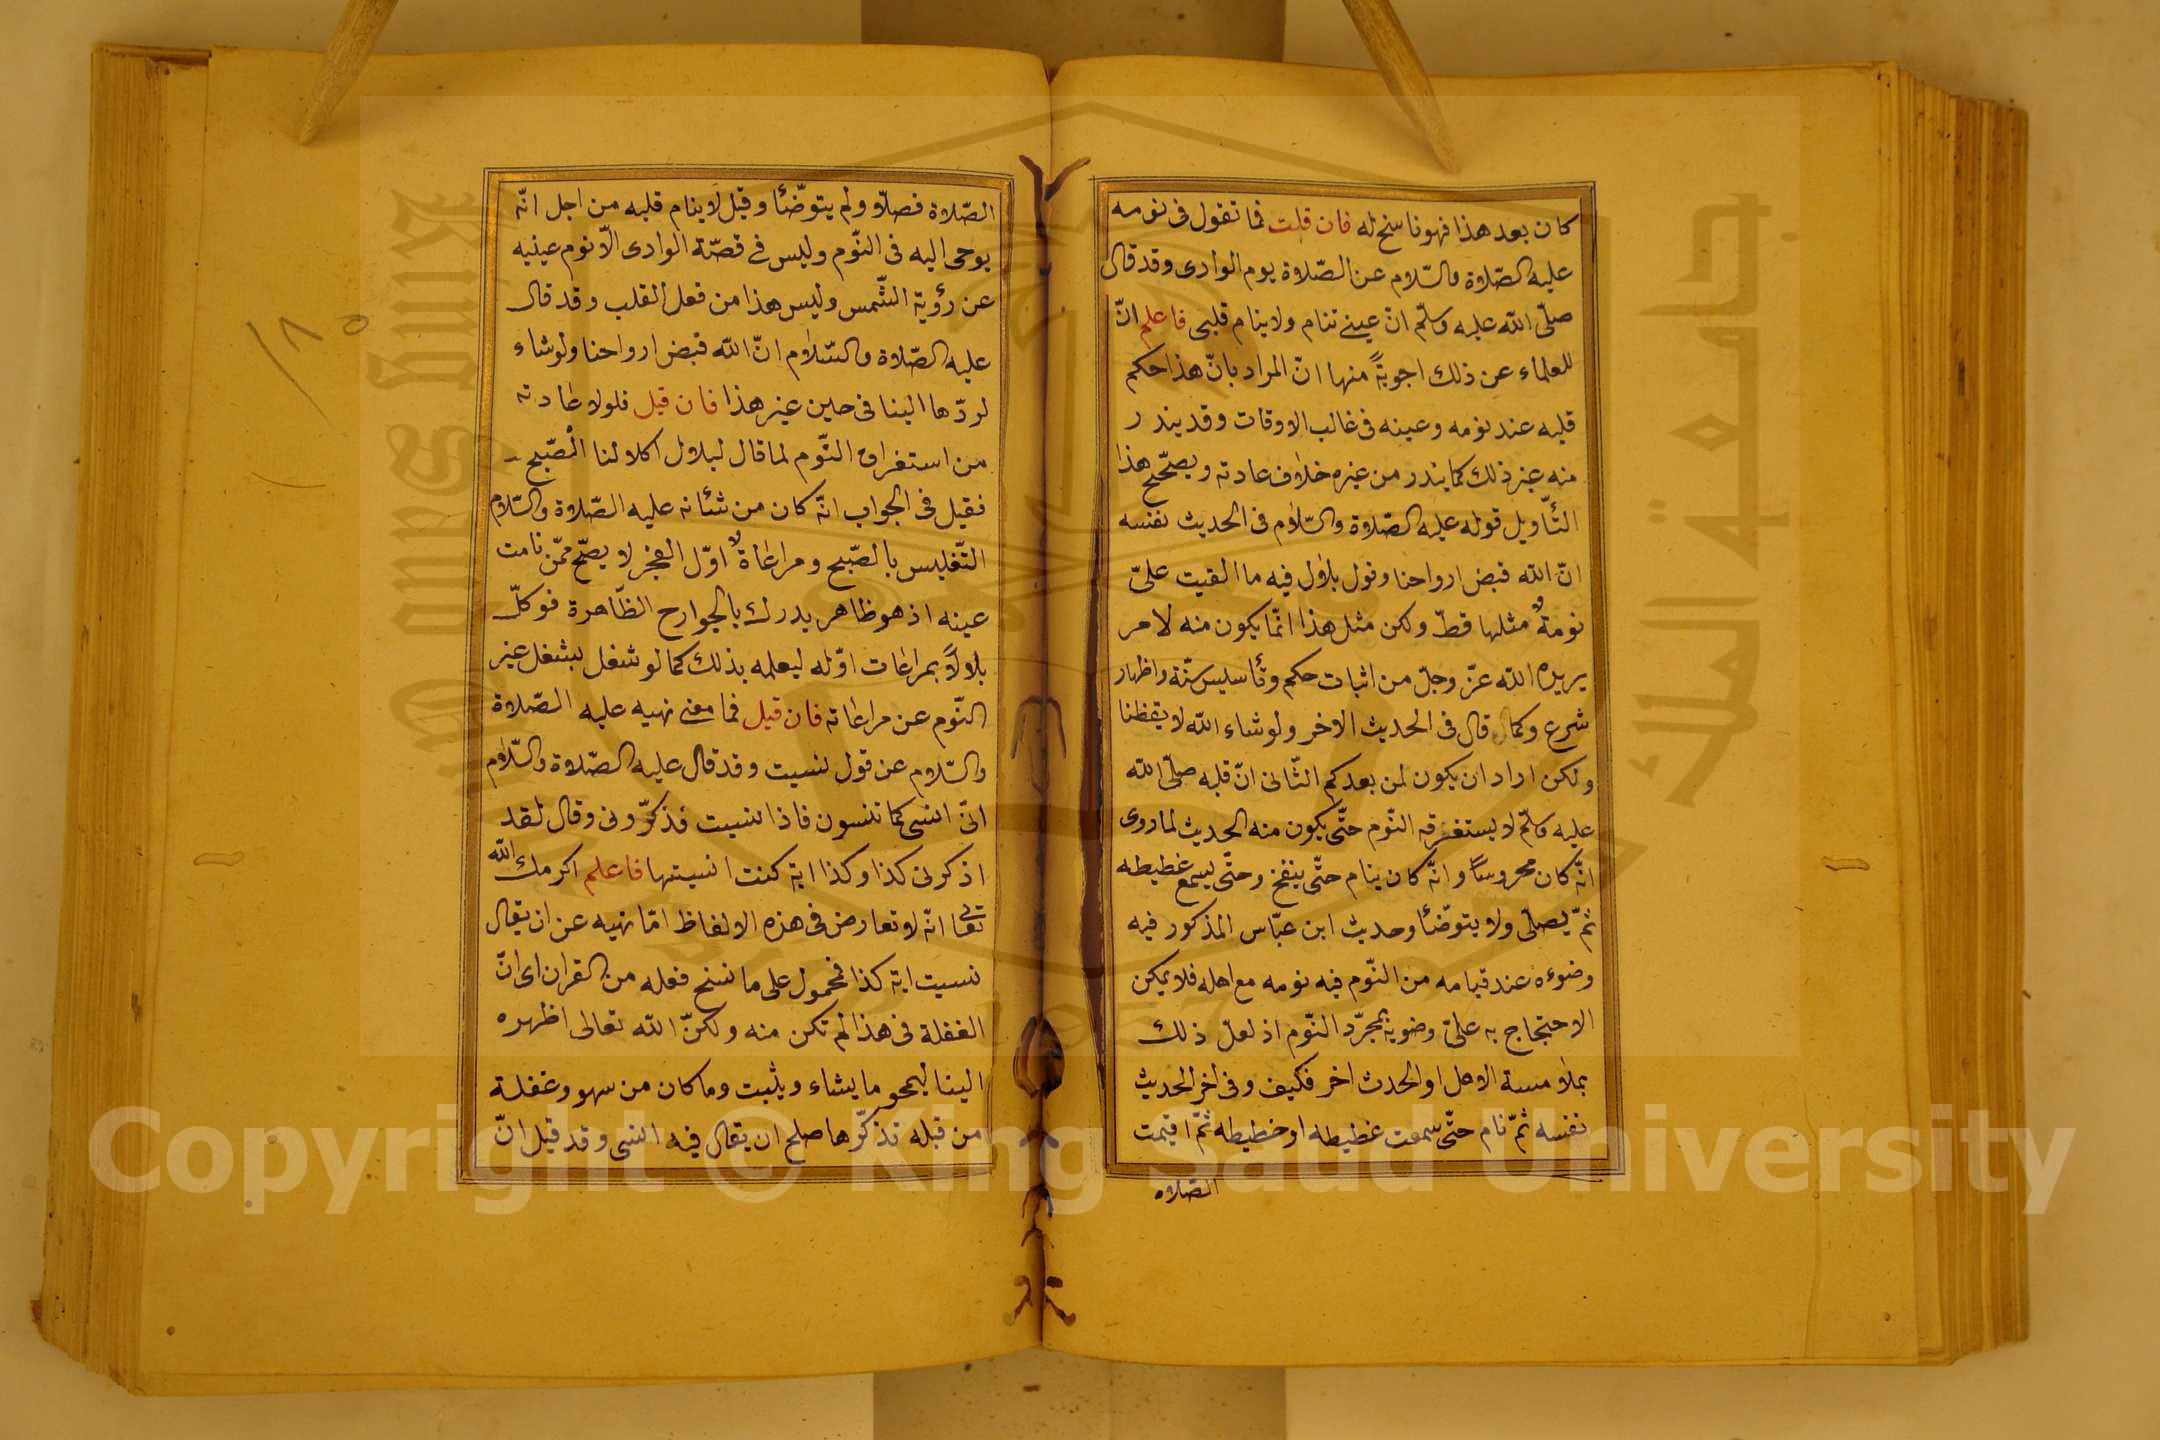 كان بعد هذا فهو ناسخ له فان قلت فما تقول فى نومه
عليه الصّلاة والسّلام عن الصّلاة يوم الوادى وقد قال
صلّى الله عليه وسلّم انّ عينى تنام ولا ينام قلبى فاعلم انّ
للعلماء عن ذلك اجوبةً منها انّ المراد بانّ هذا حكم
قلبه عند نومه وعينه فى غالب الاوقات وقد يندر
منه غير ذلك كما يندر من غيره خلاف عادته ويصحّح هذا
التّأويل قوله عليه الصّلاة والسّلام فى الحديث نفسه
انّ الله قبض ارواحنا وقول بلال فيه ما القيت علىّ
نومةٌ مثلها قطّ ولكن مثل هذا انّما يكون منه لامر
يريده الله عزّ وجلّ من اثبات حكم وتأسيس سنّة واظهار
شرع وكما قال فى الحديث الاخر ولو شاء الله لايقظنا
ولكن اراد ان يكون لمن بعدكم الثّانى انّ قلبه صلّى الله
عليه وسلّم لا يستغرقه النّوم حتّى يكون منه الحديث لما روى
انّه كان محروسًا وانّه كان ينام حتّى ينفخ وحتّى يسمع غطيطه
ثمّ يصلّى ولا يتوضّأ وحديث ابن عبّاس المذكور فيه
وضوءه عند قيامه من النّوم فيه نومه مع اهله فلا يمكن
الاحتجاج به على وضويه بمجرّد النّوم اذ لعلّ ذلك
بملامسة الاهل او الحدث اخر فكيف وفى اخر الحديث
نفسه ثمّ نام حتّى سمعت غطيطه او خطيطه ثمّ اقيمت
الصّلاه
الصّلاة فصلّا ولم يتوضّأ وقيل لا ينام قلبه من اجل انّه
يوحى اليه فى النّوم وليس فى قصّة الوادى الّا نوم عينيه
عن رؤية الشّمس وليس هذا من فعل القلب وقد قال
عليه الصّلاة والسّلام انّ الله قبض ارواحنا ولو شاء
لردّها الينا فى حين غير هذا فان قيل فلولا عادته
من استغراق النّوم لما قال لبلال اكلا لنا الصّبح
فقيل فى الجواب انّه كان من شأنه عليه الصّلاة والسّلام
التّغليس بالصّبح ومراعاة اوّل الفجر لا يصحّ ممّن نامت
عينه اذ هو ظاهر يدرك بالجوارح الظّاهرة فوكلّ
بلالاً بمراعات اوّله ليعلمه بذلك كما لو شغل بشغل غير
النّوم عن مراعاته فان قيل فما معنى نهيه عليه الصّلاة
والسّلام عن قول نسيت وقد قال عليه الصّلاة والسّلام
انّى انسى كما تنسون فاذا نسيت فذكّرونى وقال لقد
اذكرنى كذا وكذا اية كنت انسيتها فاعلم اكرمك الله
تعالى انّه لا تعارض فى هذه الالفاظ امّا نهيه عن ان يقال
نسيت اية كذا فمحمول على ما نسخ فعله من القران اى انّ
الغفلة فى هذا لم تكن منه ولكنّ الله تعالى اظهره
الينا ليمحو ما يشاء ويثبت وما كان من سهو وغفلة
من قبله تذكّرها صلح ان يقال فيه انسى وقد قيل انّ
١٨٥
جامعة الملك
King Saud University
Copyright © King Saud University
1957